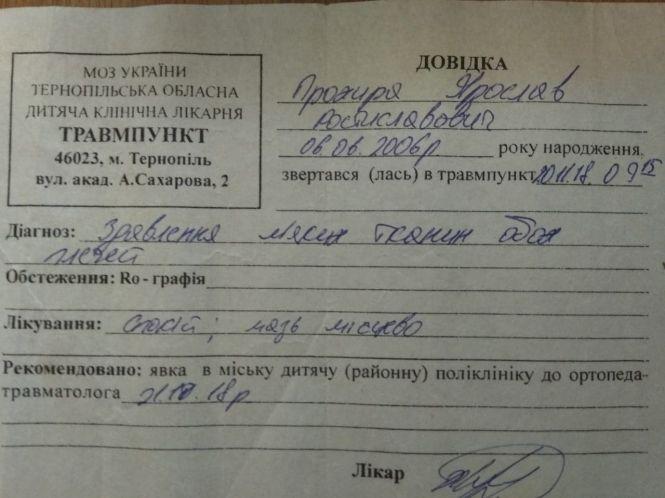 МОЗ УКРАЇНИ
ТЕРНОПІЛЬСЬКА ОБЛАСНА
ДИТЯЧА КЛІНІЧНА ЛІКАРНЯ
ТРАВМПУНКТ
46023, м. Тернопіль
вул. акад. А.Сахарова, 2
ДОВІДКА
Ярослав
Ростиславович
06.06.2006р року народження,
звертався (лась) в травмпункт 20.11.18. 09 15
Діагноз: Забиття м'яких тканин обох
Обстеження: Ro - графія
Лікування: спокій; мазь місцево
Рекомендовано: явка в міську дитячу (районну) поліклініку до ортопеда-
травматолога 18р
Лікар